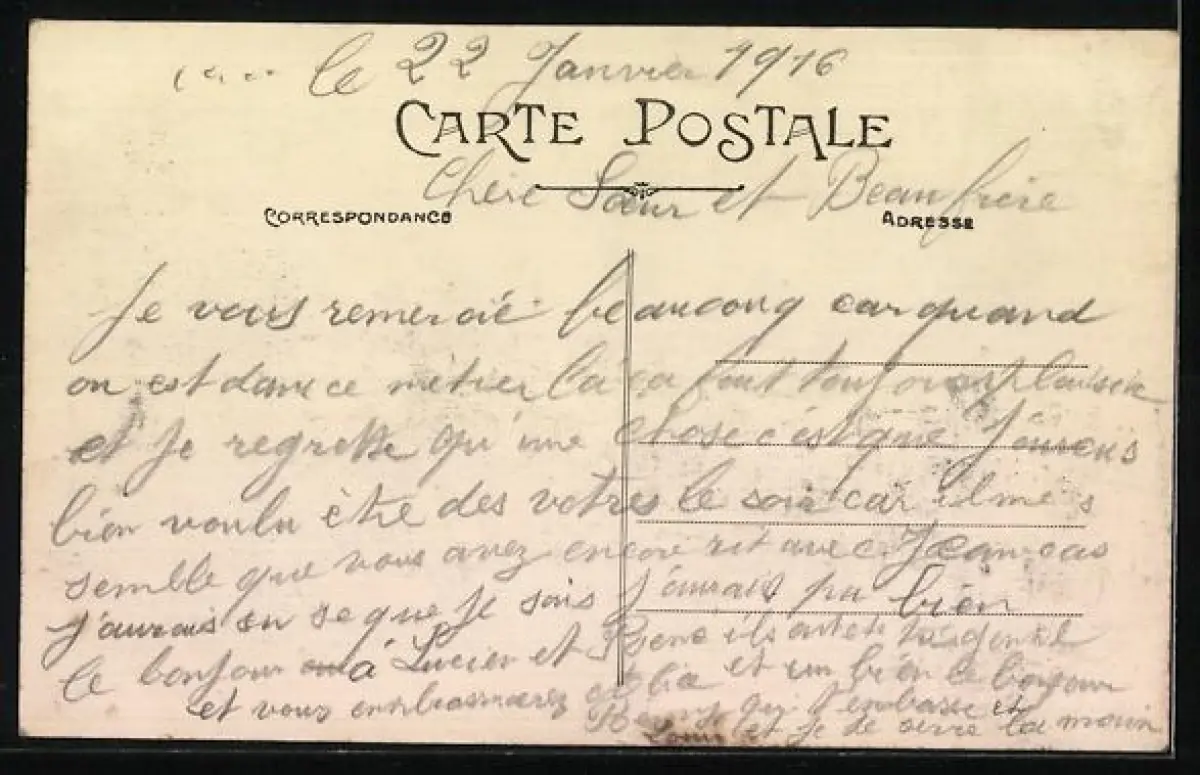 le 22 Janvier 1916
CARTE POSTALE
Chère Sœur et Beau frère
CORRESPONDANCE
ADRESSE
Je vous remercie beaucoug car quand
on est dans ce metier la ca fait toujours plaisir
et Je regrette qu'une chose c'est que J'aurais
bien voulu être des votres le soir car il me s
semble que vous avez encore rit avec Jean cas
J'aurais su se que Je sais J'aurais pu bien
le bonjour à Lucien et ils
et vous embrasserez et un bien le bonjour
qui t'embrasse et
et Je te serre la main